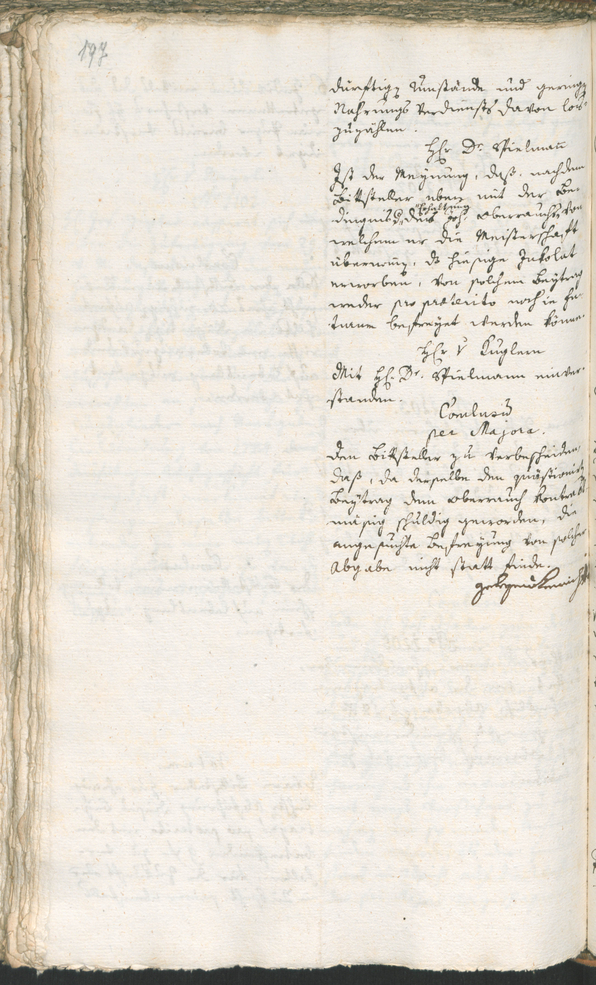 197
dürftigen Umstände und geringen
Nahrungs Verdiensts davon los-
zuzählen.
HE. Dr. Spielmann
Ist der Meynung, daß, nachdem
Bittsteller eben mit der Be-
dingniß
welchem er die Meisterschaft
übernimmt, das hiesige Inkolat
erworben, von solchem Beytrag
weder pro praeterito noch in fu-
turum befreyet werden könne.
HE. v Kuglern
Mit HE. Dr. Spielmann einver-
standen.
Conclusum
per Majora.
Den Bittsteller zu verbescheiden,
daß, da derselbe den quästionirten
Beytrag dem Oberrauch kontrakt
mäßig schuldig geworden, die
angesuchte Befreyung von solcher
Abgabe nicht statt finde.